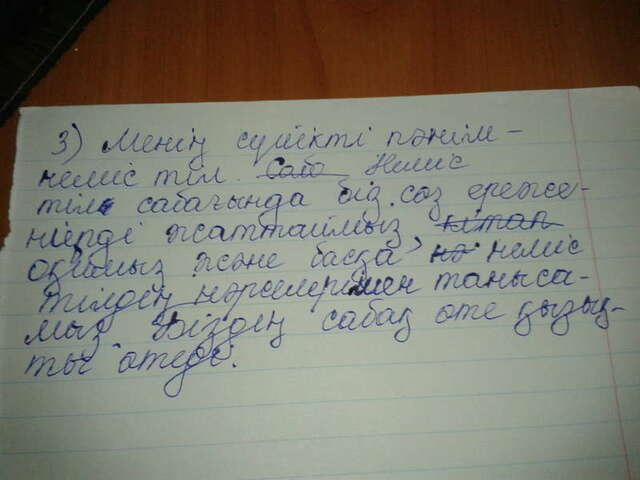 3) Менің сүйікті пәнім -
неміс тіл. Саба Неміс
тілі сабағында біз сөз ереже-
нерді жаттаймыз кітап
оқимыз және басқа но неміс
тілдең нәрселерімен таныса-
мыз. Біздең сабақ өте қызық-
ты өтеді.